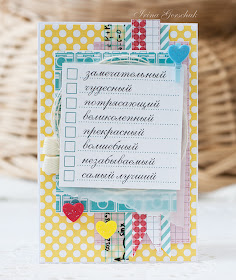 Irina Gerschuk
замечательный
чудесный
потрясающий
великолепный
прекрасный
волшебный
незабываемый
самый лучший